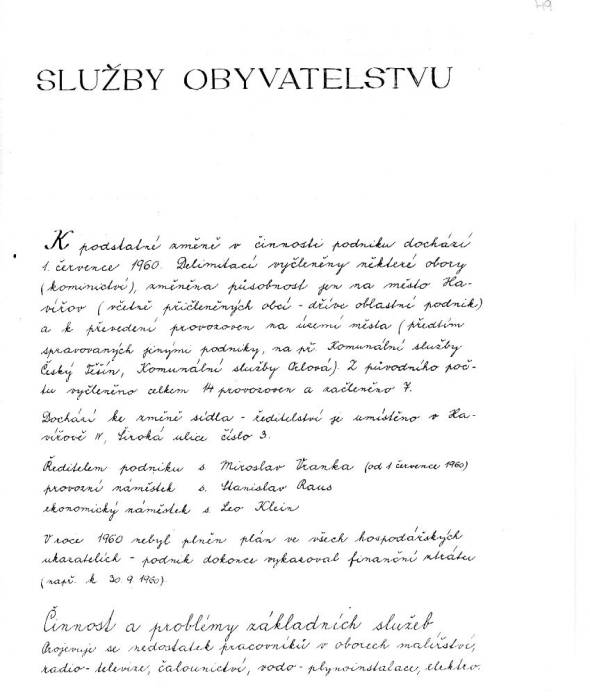 49
SLUŽBY OBYVATELSTVU
K podstatné změně v činnosti podniku dochází
1. července 1960. Delimitací vyčleněny některé obory
(kominictví), změněna působnost jen na město Ha-
vířov (včetně přičleněných obcí - dříve oblastní podnik)
a k převedení provozoven na území města (předtím
spravovaných jinými podniky, na př. Komunální služby
Český Těšín, Komunální služby Orlová). Z původního poč-
tu vyčleněno celkem 14 provozoven a začleněno 7.
Dochází ke změně sídla - ředitelství je umístěno v Ha-
vířově IV, Široká ulice číslo 3.
Ředitelem podniku s. Miroslav Vranka (od 1 července 1960)
provozní náměstek s. Stanislav Raus
ekonomický náměstek s. Leo Klein
V roce 1960 nebyl plněn plán ve všech hospodářských
ukazatelích - podnik dokonce vykazoval finanční ztrátu
(např. k 30. 9. 1960).
Činnost a problémy základních služeb
Projevuje se nedostatek pracovníků v oborech malířství,
radio - televize, čalounictví, vodo - plynoinstalace, elektro.